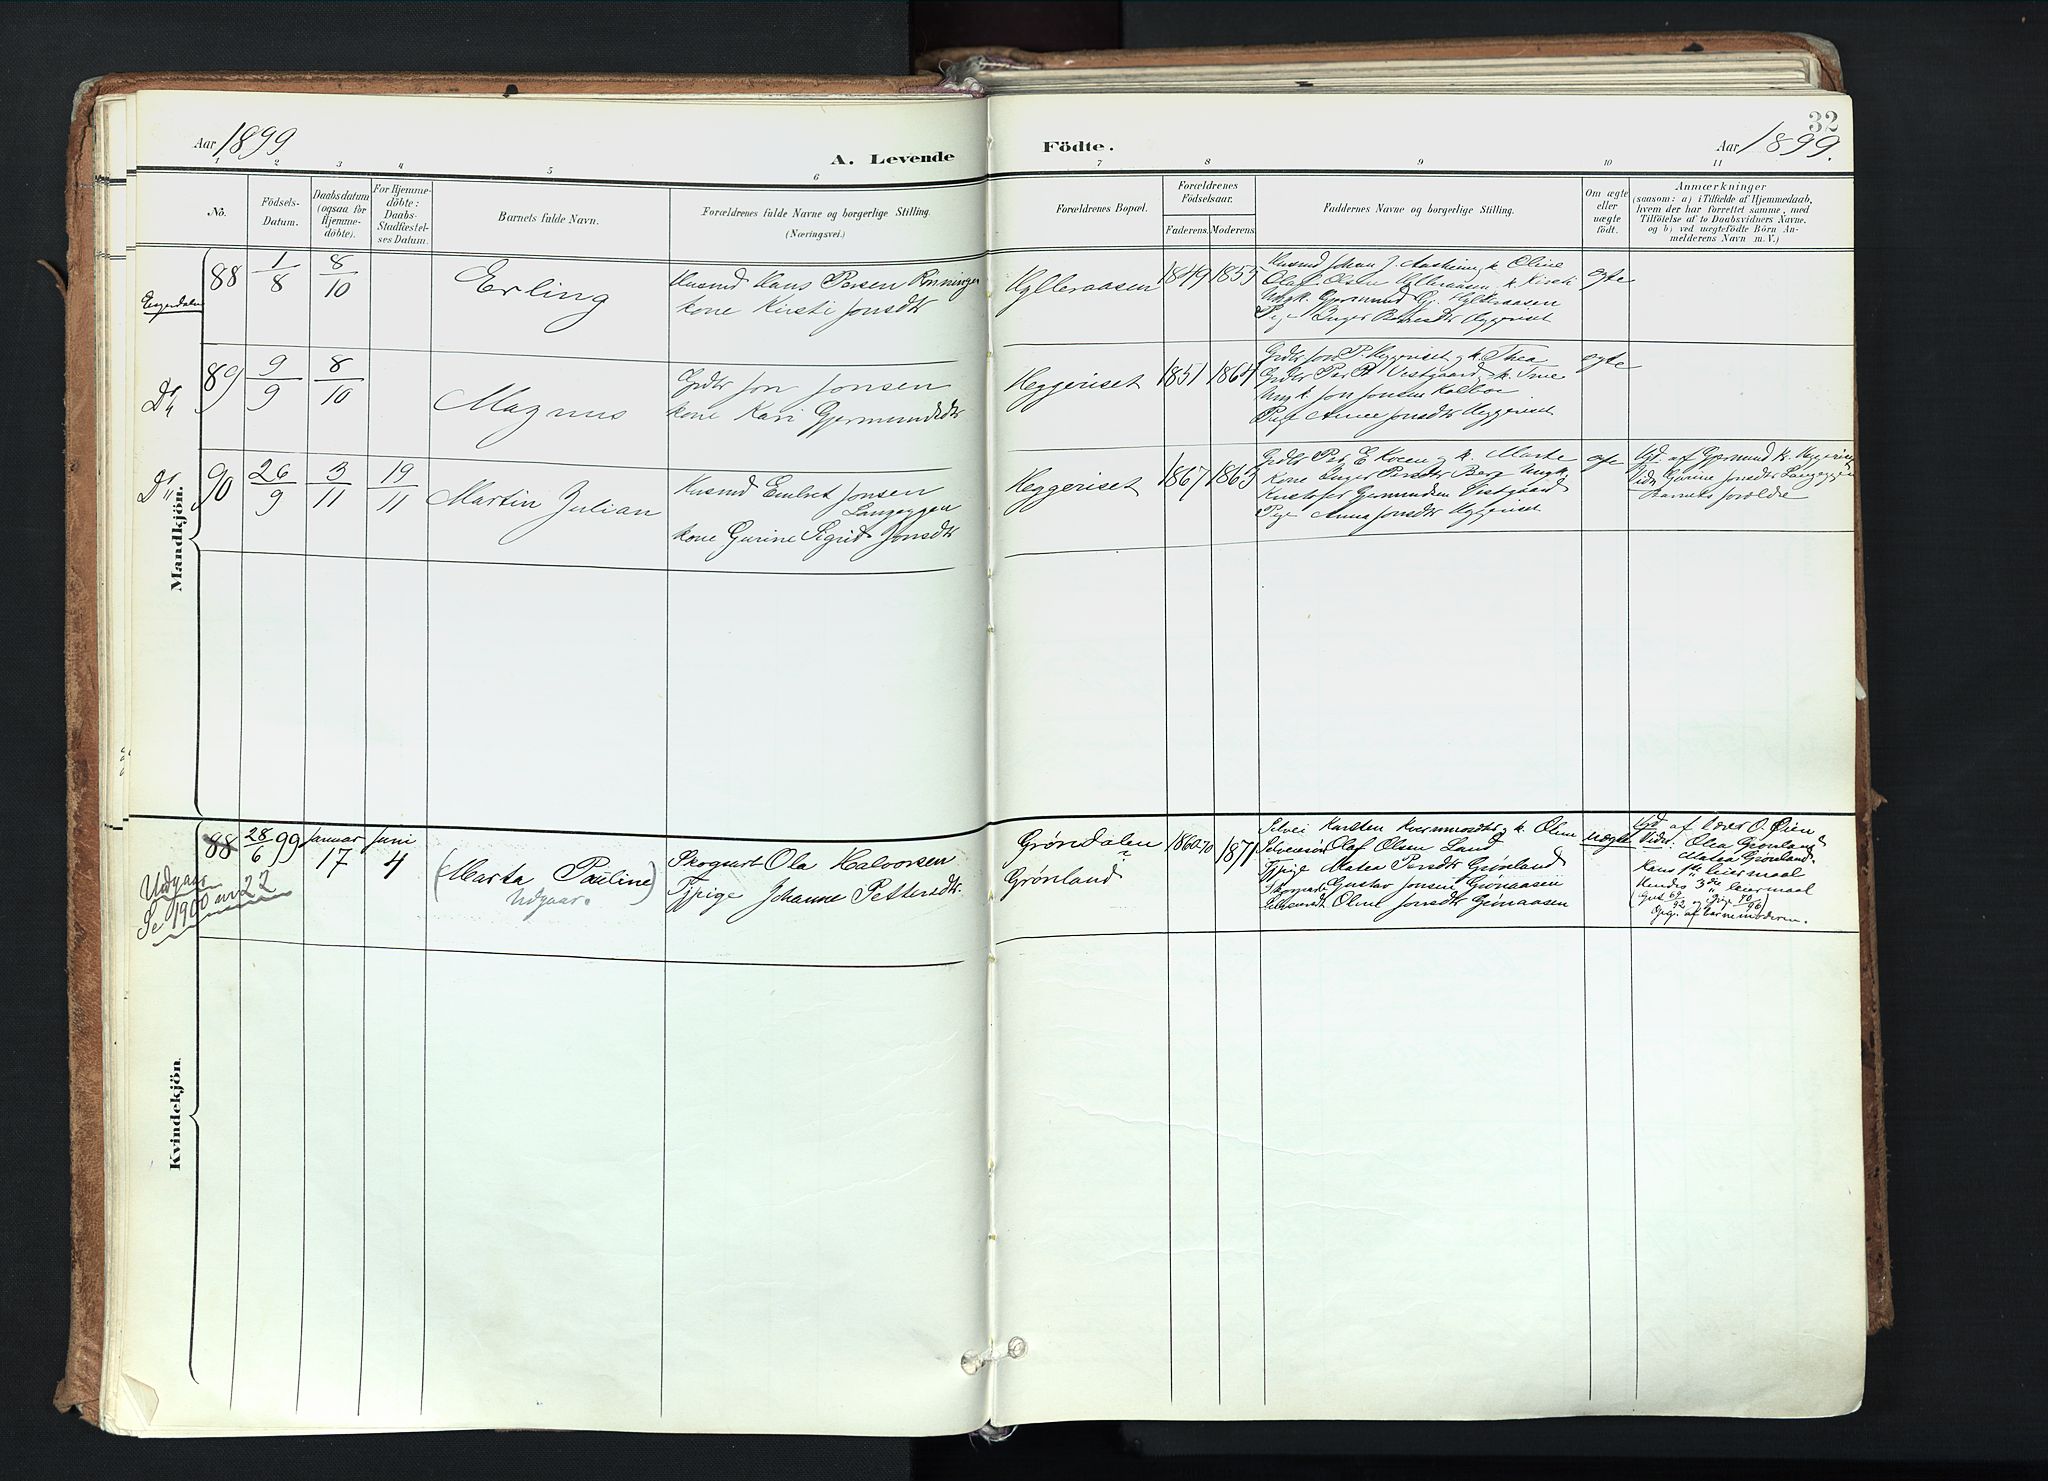 32
Aar 1899
A. Levende
Födte.
Aar 1899.
1 2 3 4 5 6 7 8 9 10 11
No.
Födsels-
Datum.
Daabsdatum
(ogsaa for
Hjemme-
döbte).
For Hjemme-
döbte:
Daabs-
Stadfæstel-
ses Datum.
Barnets fulde Navn.
Forældrenes fulde Navne og borgerlige Stilling.
(Næringsvei.)
Forældrenes Bopæl.
Forældrenes
Födselsaar.
Faderens. Moderens.
Faddernes Navne og borgerlige Stilling.
Om ægte
eller
uægte
födt.
Anmærkninger
(saasom: a) i Tilfælde af Hjemmedaab,
hvem der har forrettet samme, med
Tilföielse af to Daabsvidners Navne,
og b) ved uægtefödte Börn An-
melderens Navn m. V.)
Engerdalen
88
1/8
8/10
Erling
Husmd Hans Persen Rønningen
kone Kirsti Jonsdtr
Hylleraasen
1849 1855
Husmd Johan J. Aasheim, k. Oline
Olaf Olsen Hylleraasen k. Kirsti
Ungk. Gjermund Gj. Hylleraasen
Pige Inger Heggeriset
egte
Do
89
9/9
8/10
Magnus
Grdbr Jon Jonsen
kone Kari Gjermundsdtr
Heggeriset
1851 1864
Grdbr Jon P. Heggeriset og k. Thea
Grdbr Per P. Vestgaard, k. Trine
Ungk. Jon Jonsen
Pige Anne Jonsdtr Heggeriset
egte
Do
90
26/9
3/11
19/11
Martin Julian
Husmd Embret Jonsen
Langeggen
kone Gurine Sigrid Jonsdtr
Heggeriset
1867 1865
Grdbr Per E Kveen og k. Marte
Kone Inger Persdtr Berg Ungk.
Kristofer Gjermundsen Vestgaard
Pige Anna Jonsdtr Heggeriset
Hjd. af Gjermund K. Heggeriset
Vidn Gurine Jonsdtr Langeggen
Barnets forældre
Mandkjön.
88
28/6 99
Januar
17
Juni
4
(Marta Pauline)
Udgaar.
Skogsarb Ola Halvorsen
Tjpige Johanne Pettersdtr.
Grøndalen
Grønland
1860-70 1871
Selvei Karsten k. Oline
Selveier Olaf Olsen Lund
Tjpige Matea Persdtr Grønland
Skogsarb Gustav Jonsen Grønaasen
Oline Jonsdtr Grønaasen
uægte
Hjd af lærer O. Øien
Vidn. Olea Grønland
Matea Grønland
Hans 1ste leiermaal
Hendes 3die leiermaal
(Gut 69/92 og pige 10/96)
Opg. af barnemoderen.
Udgaar
Se 1900 nr 22
Kvindekjön.